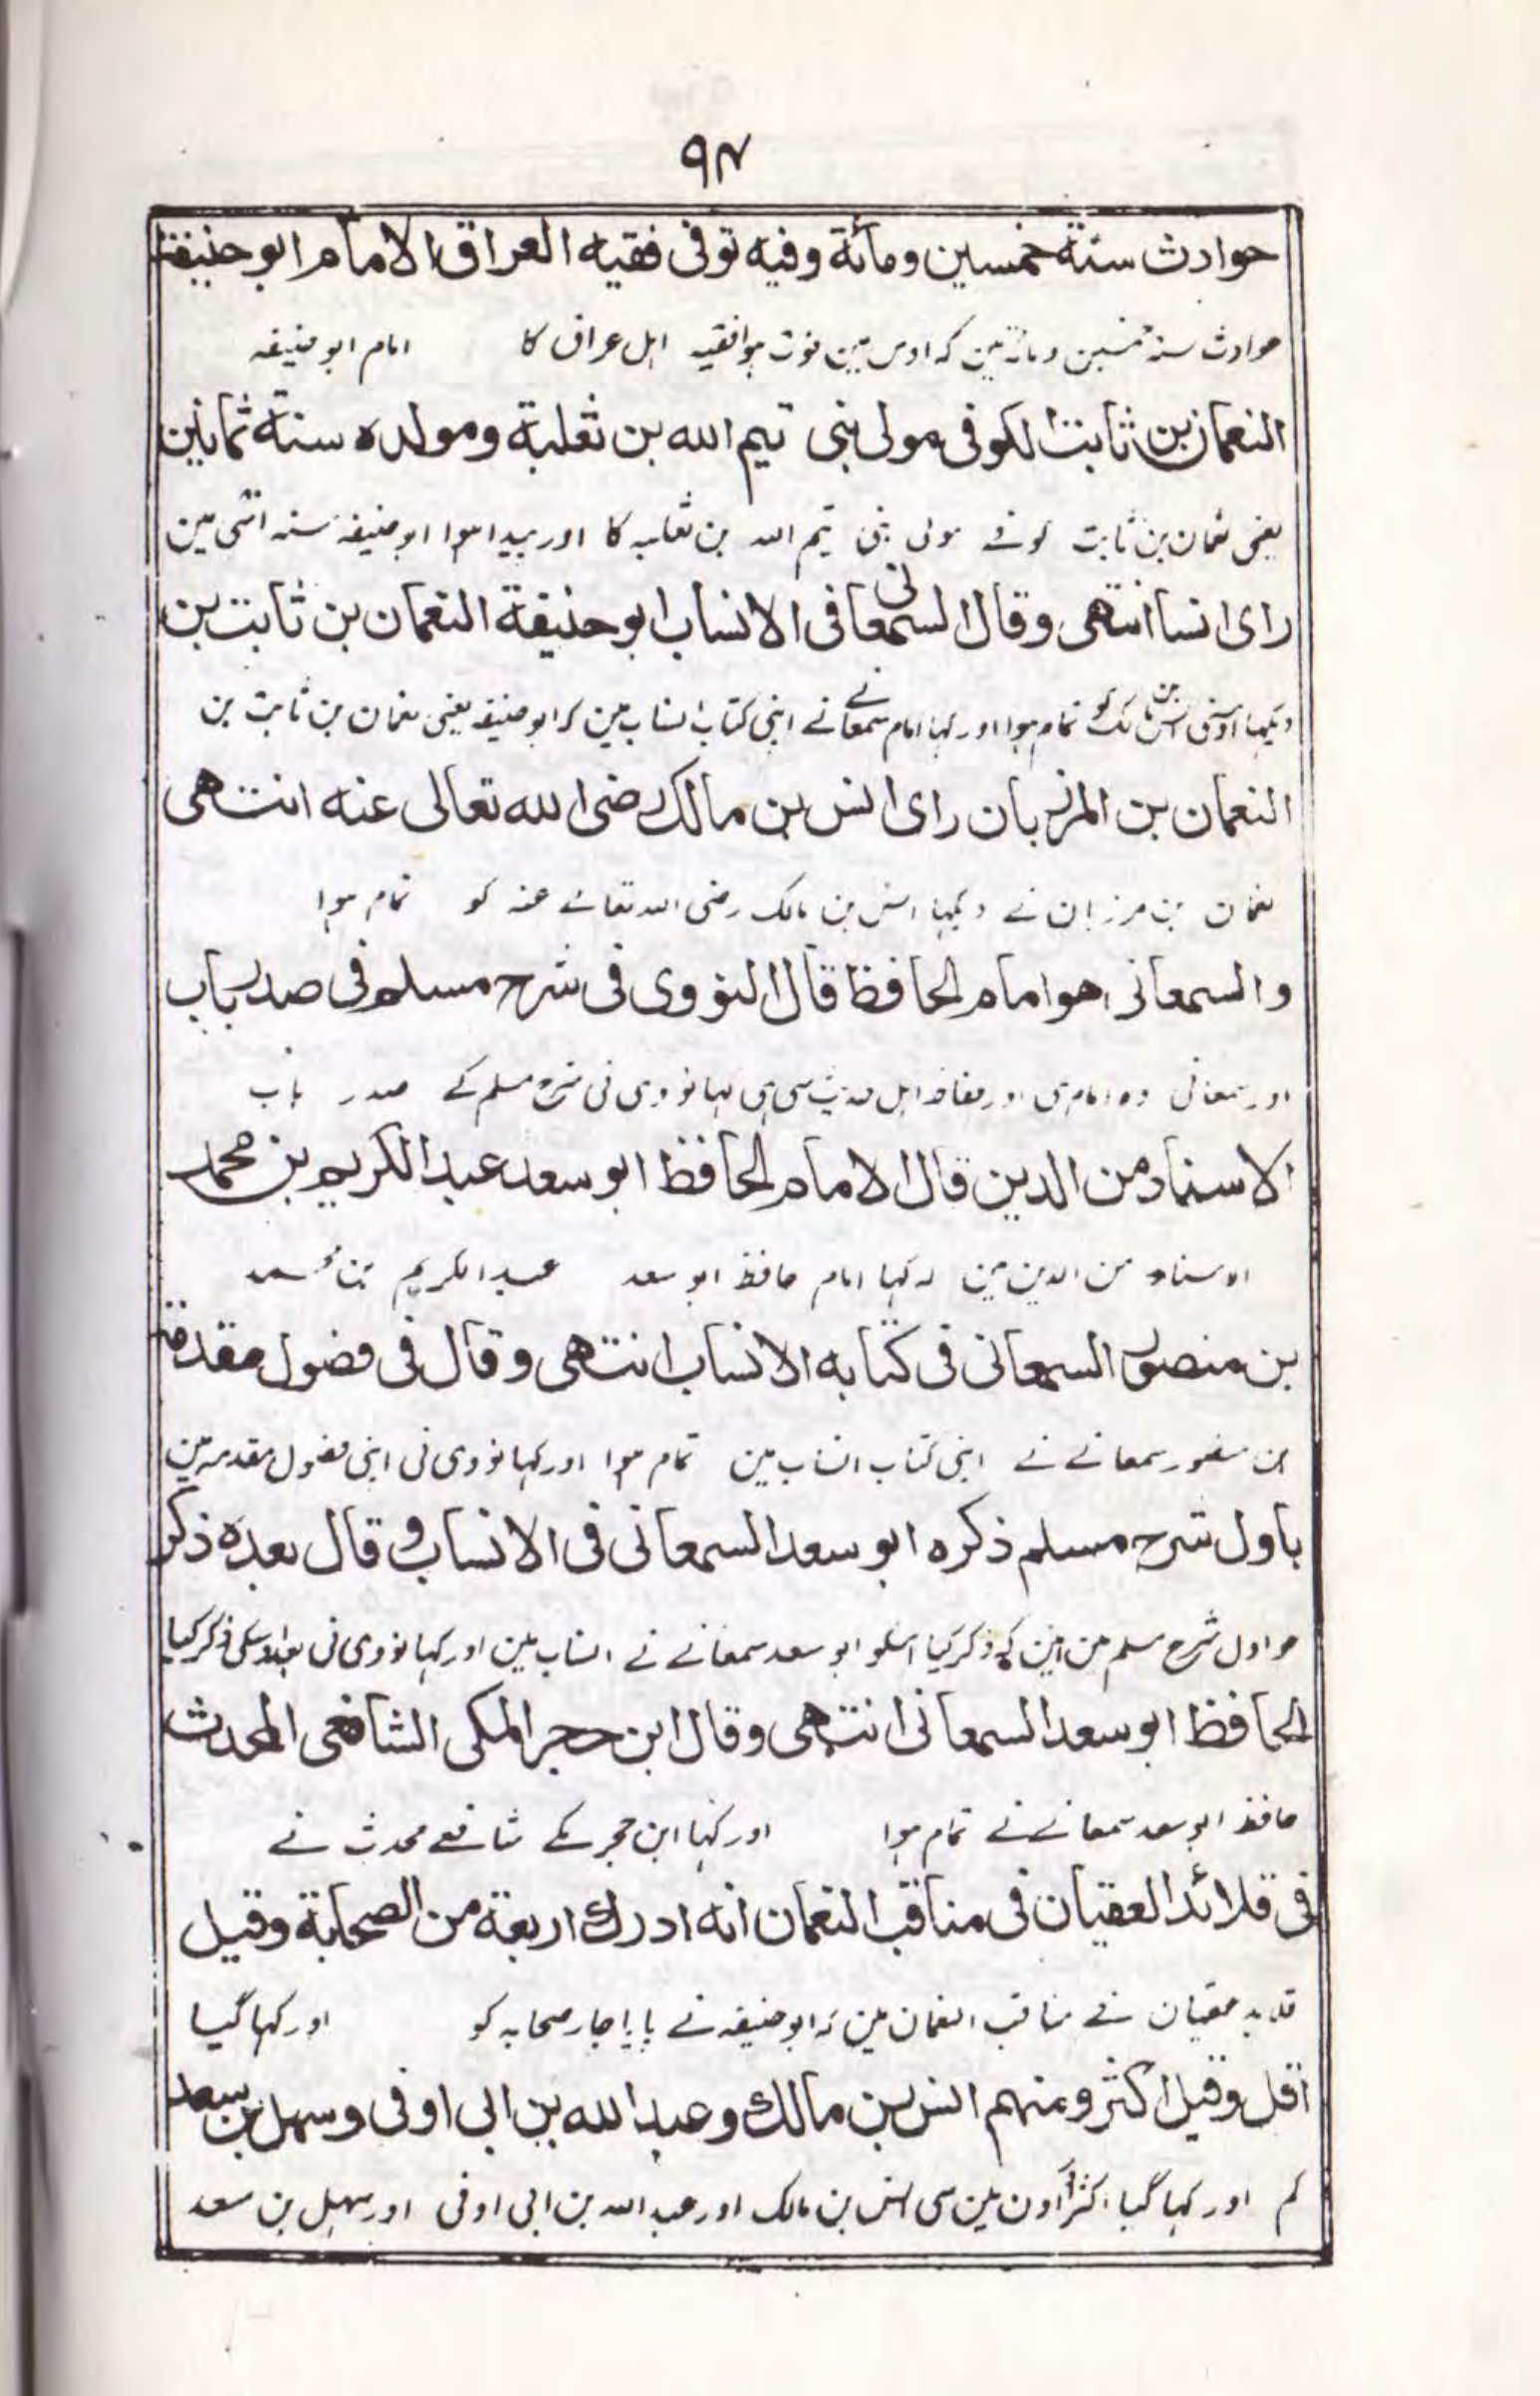 ۹۴
حوادث سنة خمسين ومائة وفيه توفى فقيه العراق الامام ابو حنيفة
حوادث سنہ خمسین و مائۃ مین کہ اوس مین فوت ہوا فقیہ اہل عراق کا امام ابو حنیفہ
النعمان بن ثابت الكوفى مولى بنى تيم الله بن ثعلبة ومولده سنة ثمانين
یعنی نعمان بن ثابت کوفے مولی بنی تیم اللہ بن ثعلبہ کا اور پیدا ہوا ابو حنیفہ سنہ اسّی مین
راى انسا انتهى وقال السمعانى فى الانساب ابو حنيفة النعمان بن ثابت بن
دیکہا اوسنی انس بن مالک کو تمام ہوا اور کہا امام سمعانے نے اپنی کتاب انساب مین کہ ابو حنیفہ یعنی نعمان بن ثابت بن
النعمان بن المرزبان راى انس بن مالك رضى الله تعالى عنه انتهى
نعمان بن مرزبان نے دیکہا انس بن مالک رضی اللہ تعالے عنہ کو تمام ہوا
والسمعانى هو امام الحافظ قال النووى فى شرح مسلم فى صدر باب
اور سمعانی وہ امام ہی اور حفاظ اہل حدیث سی ہی کہا نووی نی شرح مسلم کے صدر باب
الاسناد من الدين قال الامام الحافظ ابو سعد عبد الكريم بن محمد
الاسناد من الدین مین کہ کہا امام حافظ ابو سعد عبد الکریم بن محمد
بن منصور السمعانى فى كتابه الانساب انتهى وقال فى فصول مقدمة
بن منصور سمعانے نے اپنی کتاب انساب مین تمام ہوا اور کہا نووی نی اپنی فصول مقدمہ مین
باول شرح مسلم ذكره ابو سعد السمعانى فى الانساب وقال بعده ذكر
جو اول شرح مسلم مین ہین کہ ذکر کیا اسکو ابو سعد سمعانے نے انساب مین اور کہا نووی نی بعد اوسکی ذکر کیا
الحافظ ابو سعد السمعانى انتهى وقال ابن حجر المكى الشافعى المحدث
حافظ ابو سعد سمعانے نے تمام ہوا اور کہا ابن حجر مکے شافعے محدث نے
فى قلائد العقيان فى مناقب النعمان انه ادرك اربعة من الصحابة وقيل
قلاید عقیان فے مناقب النعمان مین کہ ابو حنیفہ نے پایا چار صحابہ کو اور کہا گیا
اقل وقيل اكثر ومنهم انس بن مالك وعبد الله بن ابى اوفى وسهل بن سعد
کم اور کہا گیا اکثر اور اون مین سی انس بن مالک اور عبد اللہ بن ابی اوفی اور سہل بن سعد